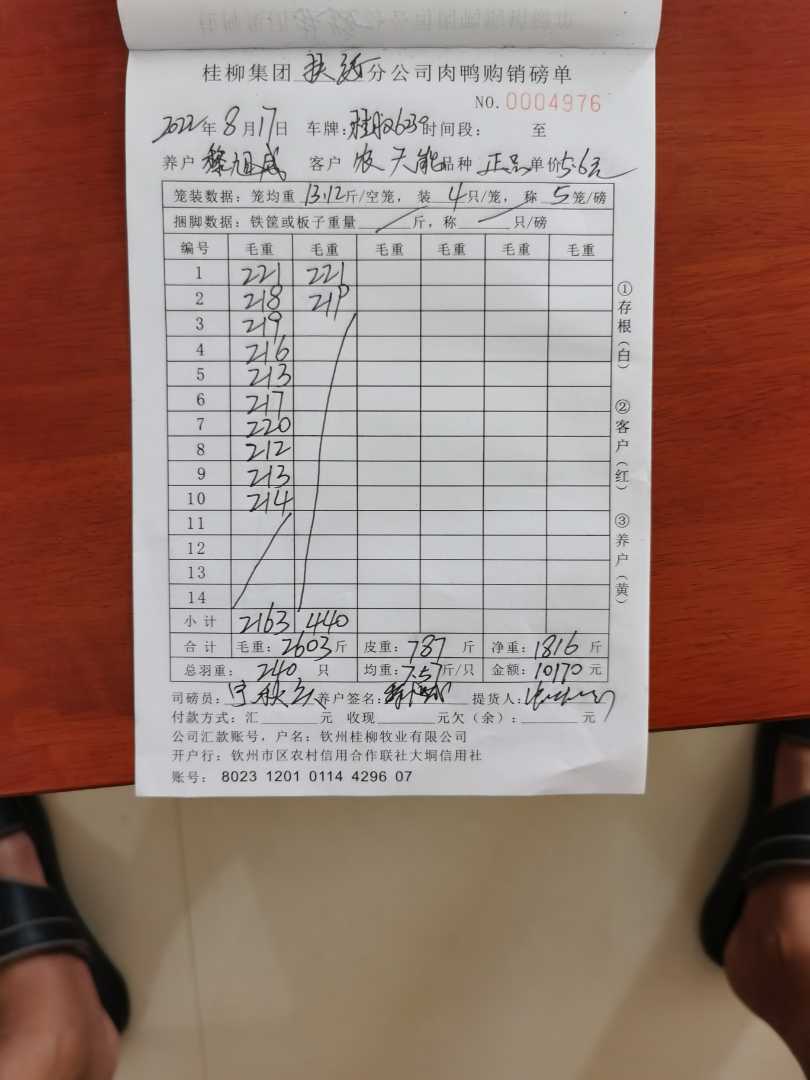 桂柳集团 扶绥 分公司肉鸭购销磅单
NO. 0004976
2022年 8月17日 车牌: 时间段: 至
养户 黎旭威 客户 农天能 品种 正品 单价 5.6元
笼装数据: 笼均重 13.12 斤/空笼, 装 4 只/笼, 称 5 笼/磅
捆脚数据: 铁筐或板子重量 斤, 称 只/磅
编号 毛重 毛重 毛重 毛重 毛重 毛重
1 221 221
2 218 219
3 219
4 216
5 213
6 217
7 220
8 212
9 213
10 214
11
12
13
14
小计 2163 440
合计 毛重: 2603 斤 皮重: 787 斤 净重: 1816 斤
总羽重: 240 只 均重: 7.57 斤/只 金额: 10170 元
司磅员: 养户签名: 提货人:
付款方式: 汇 元 收现 元欠(余): 元
公司汇款账号, 户名: 钦州桂柳牧业有限公司
开户行: 钦州市区农村信用合作联社大垌信用社
账号: 8023 1201 0114 4296 07
①存根(白) ②客户(红) ③养户(黄)